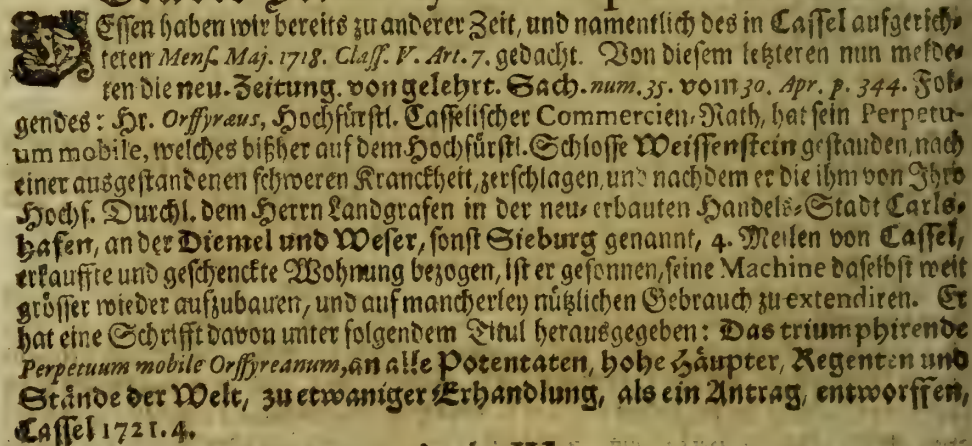 DEssen haben wir bereits zu anderer Zeit, und namentlich des in Cassel aufgerich-
teten Mens. Maj. 1718. Class. V. Art. 7. gedacht. Von diesem letzteren nun melde-
ten die neu. Zeitung. von gelehrt. Sach. num. 35. vom 30. Apr. p. 344. Fol-
gendes: Hr. Orffyræus, Hochfürstl. Casselischer Commercien-Rath, hat sein Perpetu-
um mobile, welches bißher auf dem Hochfürstl. Schlosse Weissenstein gestanden, nach
einer ausgestandenen schweren Kranckheit, zerschlagen, und nachdem er die ihm von Ihro
Hochf. Durchl. dem Herrn Landgrafen in der neu-erbauten Handels-Stadt Carls-
hafen, an der Diemel und Weser, sonst Sieburg genannt, 4. Meilen von Cassel,
erkauffte und geschenckte Wohnung bezogen, ist er gesonnen, seine Machine daselbst weit
grösser wieder aufzubauen, und auf mancherley nützlichen Gebrauch zu extendiren. Er
hat eine Schrifft davon unter folgendem Titul herausgegeben: Das triumphirende
Perpetuum mobile Orffyreanum, an alle Potentaten, hohe Häupter, Regenten und
Stände der Welt, zu etwaniger Erhandlung, als ein Antrag, entworffen,
Cassel 1721. 4.